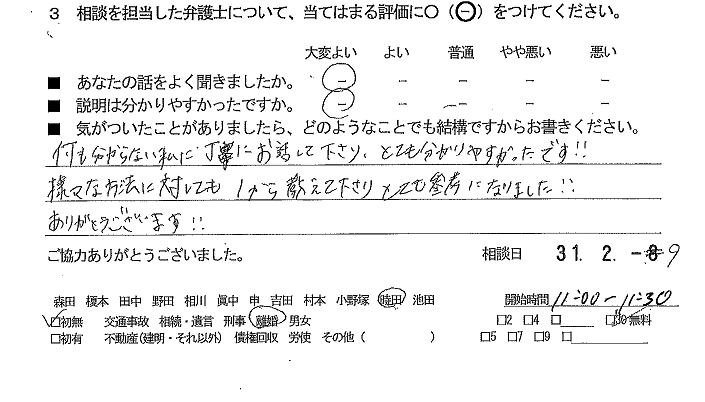 3 相談を担当した弁護士について、当てはまる評価に〇（㊀）をつけてください。
大変よい よい 普通 やや悪い 悪い
■ あなたの話をよく聞きましたか。 － － － － －
■ 説明は分かりやすかったですか。 － － － － －
■ 気がついたことがありましたら、どのようなことでも結構ですからお書きください。
何も分からない私に丁寧にお話して下さり、とても分かりやすかったです!!
様々な方法に対しても1から教えて下さりとても参考になりました!!
ありがとうございます!!
ご協力ありがとうございました。 相談日 31. 2. -8 9
森田 榎本 田中 野田 相川 眞中 申 吉田 村本 小野塚 時田 池田 開始時間 11:00～11:30
☑初無 交通事故 相続・遺言 刑事 離婚 男女 □2 □4 □ □30無料
□初有 不動産(建明・それ以外) 債権回収 労使 その他 ( ) □5 □7 □9 □